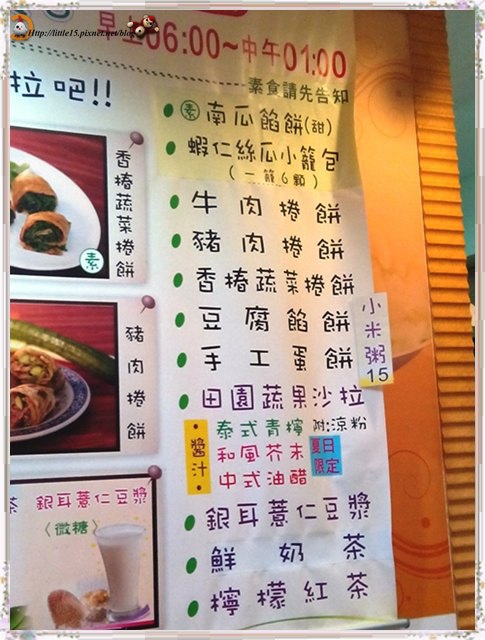 Http://little15.pixnet.net/blog
早上06:00~中午01:00
素食請先告知
拉吧!!
素南瓜餡餅(甜)
蝦仁絲瓜小籠包
(一籠6顆)
牛肉捲餅
豬肉捲餅
香椿蔬菜捲餅
豆腐餡餅
手工蛋餅
小米粥
15
田園蔬果沙拉
醬汁
泰式青檸 附:涼粉
和風芥末
中式油醋
夏日
限定
銀耳薏仁豆漿
鮮奶茶
檸檬紅茶
香椿蔬菜捲餅
素
豬肉捲餅
茶 銀耳薏仁豆漿
〈微糖〉